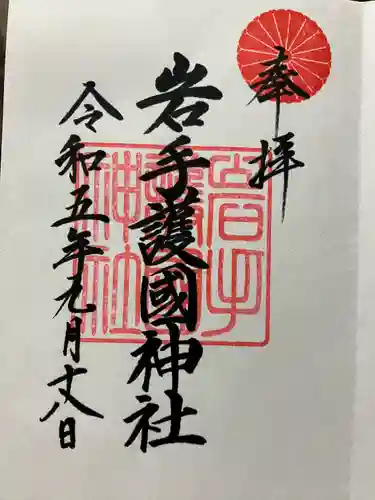 奉拝
岩手護國神社
令和五年九月十八日
岩手
護國
神社